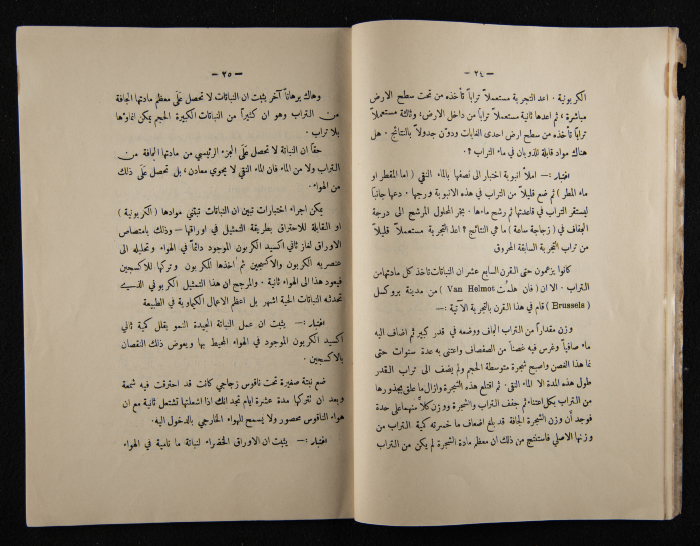 — ٢٤ —
الكربونية . اعد التجربة مستعملاً تراباً تأخذه من تحت سطح الارض
مباشرة ، ثم اعدها ثانية مستعملاً تراباً من داخل الارض، وثالثة مستعملاً
تراباً تأخذه من سطح ارض احدى الغابات ودوّن جدولاً بالنتائج . هل
هناك مواد قابلة للذوبان في ماء التراب ؟.
افتبار :— املأ انبوبة اختبار الى نصفها بالماء النقي ( اما المقطر او
ماء المطر ) ثم ضع قليلاً من التراب في هذه الانبوبة ورجها . دعها جانباً
ليستقر التراب في قاعدتها ثم رشح ماءها . بخر المحلول المرشح الى درجة
الجفاف في ( زجاجة ساعة ) ما هي النتائج ؟ اعد التجربة مستعملاً قليلاً
من تراب التجربة السابقة المحروق
كانوا يزعمون حتى القرن السابع عشر ان النباتات تاخذ كل مادتها من
التراب . الا ان ( فان هلمُت Van Helmot ) من مدينة بروكسل
( Brussels ) قام في هذا القرن بالتجربة الآتية :—
وزن مقداراً من التراب الجاف ووضعه في قدر كبير ثم اضاف اليه
ماء صافياً وغرس فيه غصناً من الصفصاف واعتنى به عدة سنوات حتى
نما هذا الغصن واصبح شجرة متوسطة الحجم ولم يضف الى تراب القدر
طول هذه المدة الا الماء النقي . ثم اقتلع هذه الشجرة وازال ما علق بجذورها
من التراب بكل اعتناء ثم جفف التراب والشجرة ووزن كلاً منهما على حدة
فوجد أن وزن الشجرة الجافة قد بلغ اضعاف ما خسرته كمية التراب من
وزنها الاصلي فاستنتج من ذلك ان معظم مادة الشجرة لم يكن من التراب
— ٢٥ —
وهاك برهاناً آخر يثبت ان النباتات لا تحصل عَلَى معظم مادتها الجافة
من التراب وهو ان كثيراً من النباتات الكبيرة الحجم يمكن انماؤها
بلا تراب .
حقاً ان النباتة لا تحصل عَلَى الجزء الرئيسي من مادتها الجافة من
التراب ولا من الماء فان الماء النقي لا يحوي معادن، بل تحصل عَلَى ذلك
من الهواء .
يمكن اجراء اختبارات تبين ان النباتات تبتني موادها ( الكربونية )
او القابلة للاحتراق بطريقة التمثيل في اوراقها — وذلك بامتصاص
الاوراق لغاز ثاني اكسيد الكربون الموجود دائماً في الهواء وتحليله الى
عنصريه الكربون والاكسيجين ثم اخذها للكربون وتركها للاكسجين
فيعود هذا الى الهواء ثانية . والمرجح ان هذا التمثيل الكربوني الذي
تحدثه النباتات الحية اشهر بل اعظم الاعمال الكيماوية في الطبيعة
افتبار :— يثبت ان عمل النباتة الجيدة النمو يقلل كمية ثاني
اكسيد الكربون الموجود في الهواء المحيط بها ويعوض ذلك النقصان
بالاكسجين .
ضع نبتة صغيرة تحت ناقوس زجاجي كانت قد احترقت فيه شمعة
وبعد ان تتركها مدة عشرة ايام تجد انك اذا اشعلتها تشتعل ثانية مع ان
هواء الناقوس محصور ولا يسمح للهواء الخارجي بالدخول اليه .
افتبار :— يثبت ان الاوراق الخضراء لنباتة ما نامية في الهواء